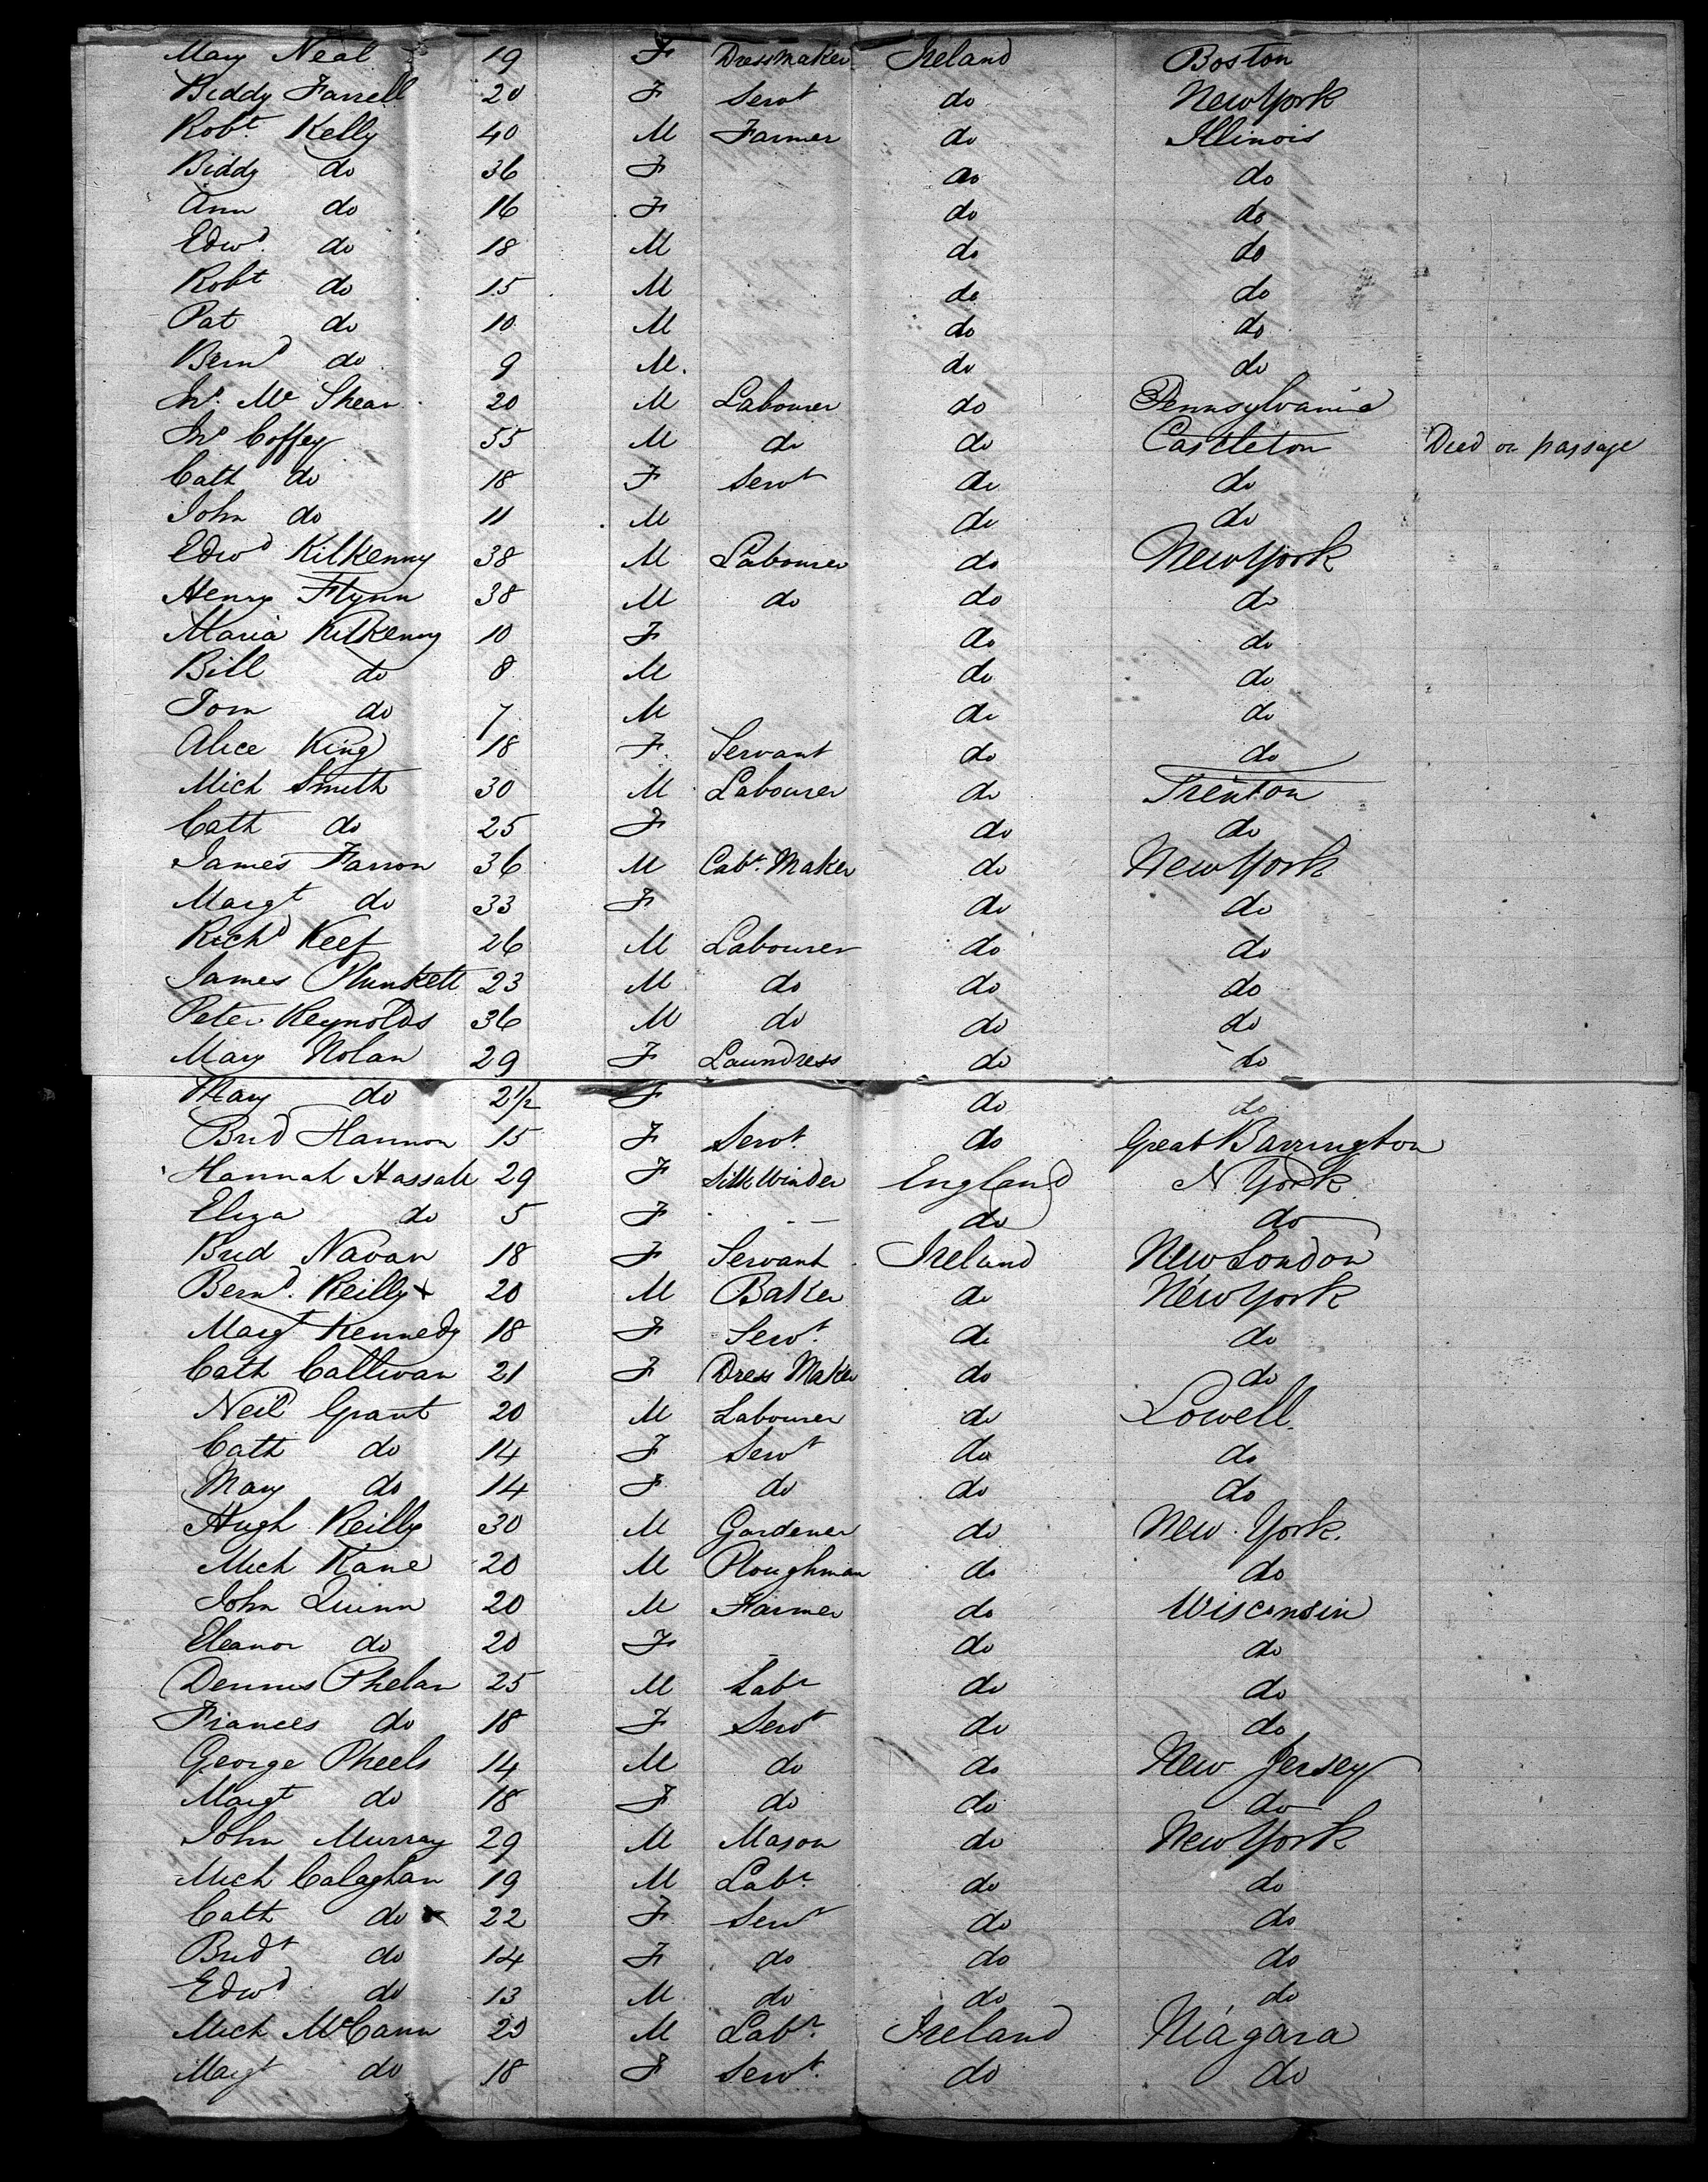 Mary Neal 19 F Dressmaker Ireland Boston
Biddy Farrell 20 F Servt do New York
Robt Kelly 40 M Farmer do Illinois
Biddy do 36 F do do
Ann do 16 F do do
Edwd do 18 M do do
Robt do 15 M do do
Pat do 10 M do do
Bernd do 9 M. do do
Jno. Mc Shear 20 M Labourer do Pennsylvania
Jno Coffey 55 M do do Castleton Died on passage
Cath do 18 F Servt do do
John do 11 M do do
Edwd Kilkenny 38 M Labourer do New York
Henry Flynn 38 M do do do
Maria Kilkenny 10 F do do
Bill do 8 M do do
Tom do 7 M do do
Alice King 18 F. Servant do do
Mich Smith 30 M Labourer do Trenton
Cath do 25 F do do
James Farron 36 M Cabt. Maker do New York
Margt do 33 F do do
Richd Keef 26 M Labourer do do
James Plunkett 23 M do do do
Peter Reynolds 36 M do do do
Mary Nolan 29 F Laundress do do
Mary do 2 1/2 F do do
Brid Hannon 15 F Servt. do Great Barrington
Hannah Hassall 29 F Silk Winder England N York
Eliza do 5 F do do
Brid Navan 18 F Servant Ireland New London
Bernd. Reilly x 20 M Baker do New York
Margt Kennedy 18 F Servt. do do
Cath Callivan 21 F Dress Maker do do
Neil Grant 20 M Labourer do Lowell
Cath do 14 F Servt do do
Mary do 14 F do do do
Hugh Reilly 30 M Gardener do New York.
Mich Kane 20 M Ploughman do do
John Quinn 20 M Farmer do Wisconsin
Eleanor do 20 F do do
Dennis Phelan 25 M Labr do do
Frances do 18 F Servt do do
George Pheels 14 M do do New Jersey
Margt do 18 F do do do
John Murray 29 M Mason do New York
Mich Calaghan 19 M Labr. do do
Cath do x 22 F Servt do do
Bridt do 14 F do do do
Edwd do 13 M do do do
Mich McCann 23 M Labr. Ireland Niagara
Margt do 18 F Servt. do do